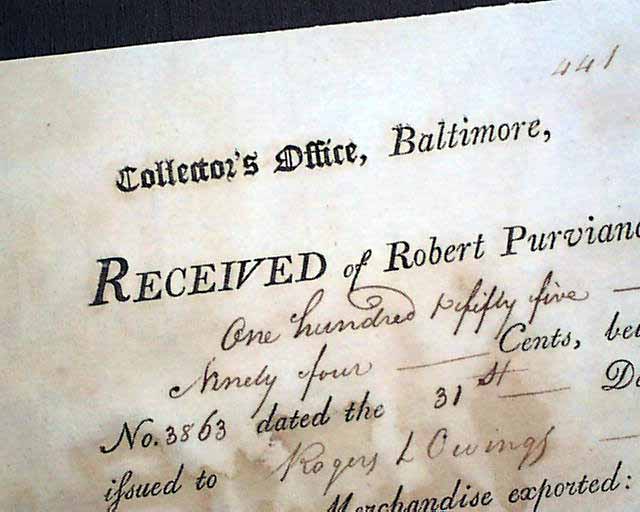 441
Collector's Office, Baltimore,
RECEIVED of Robert Purvianc
One hundred & fifty five
Ninety four Cents, bei
No. 3863 dated the 31st D
iſsued to Rogers & Owings
Merchandise exported: